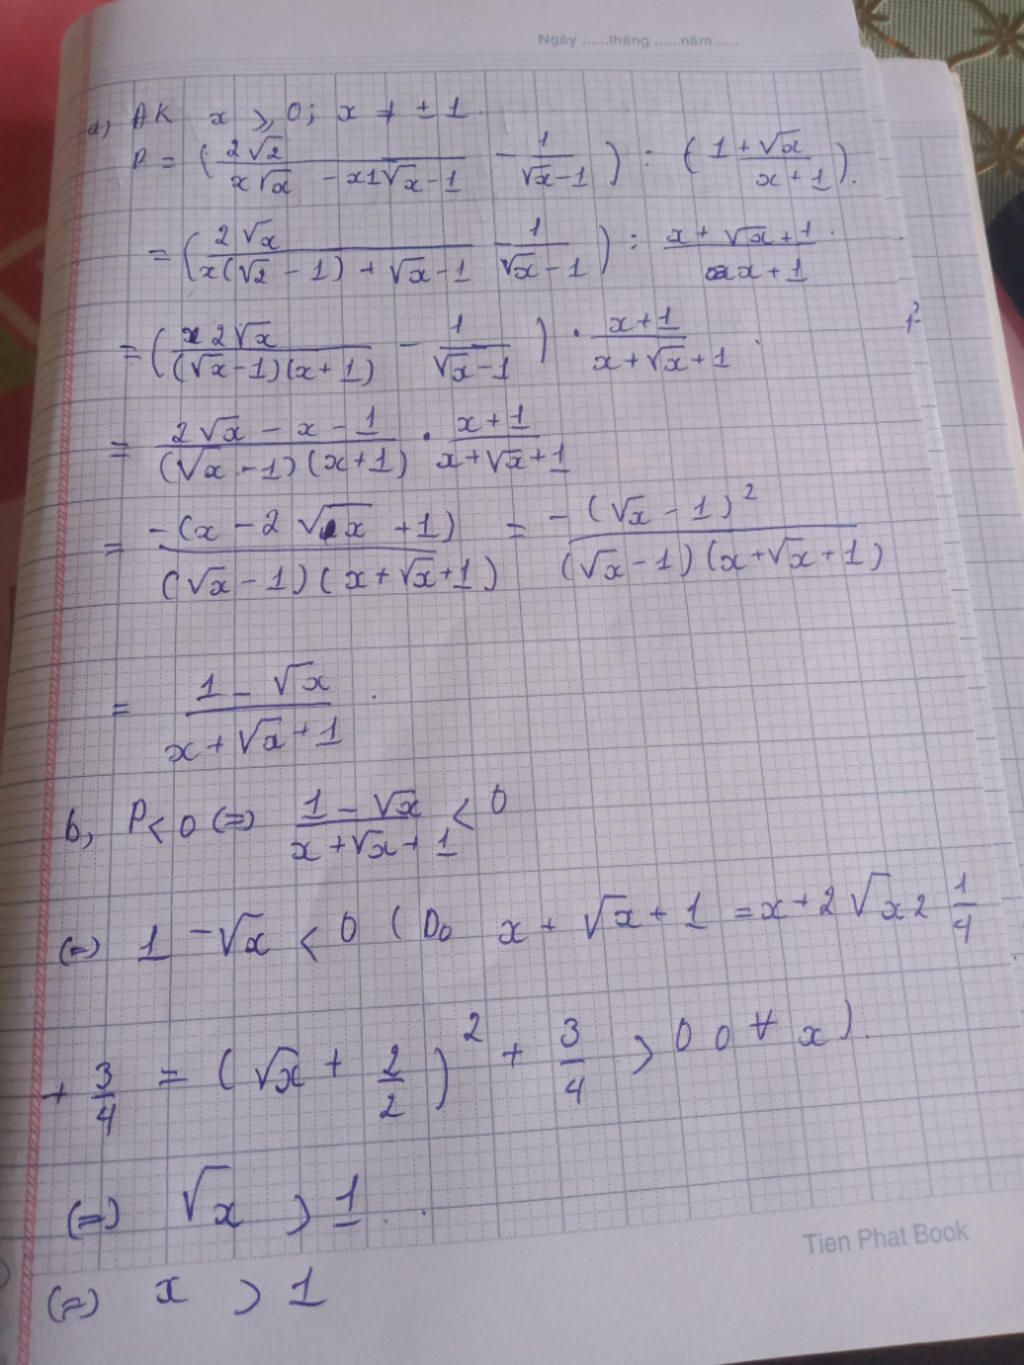 Ngày ......tháng ......năm......
a) ĐK x ≥ 0; x ≠ ± 1.
P = (2√2 / x√x - x1√x - 1 - 1 / √x - 1) : (1 + √x / x + 1).
= (2√x / x(√2 - 1) + √x - 1 1 / √x - 1) : x + √x + 1 / x + 1
= (2√x / (√x - 1)(x + 1) - 1 / √x - 1) · x + 1 / x + √x + 1
= 2√x - x - 1 / (√x - 1)(x + 1) · x + 1 / x + √x + 1
= -(x - 2√x + 1) / (√x - 1)(x + √x + 1) = -(√x - 1)² / (√x - 1)(x + √x + 1)
= 1 - √x / x + √x + 1.
b, P < 0 (=) 1 - √x / x + √x + 1 < 0
(=) 1 - √x < 0 (Do x + √x + 1 = x + 2√x 2 1/4
+ 3/4 = (√x + 2/2)² + 3/4 > 0 0 ∀ x).
(=) √x > 1.
(=) x > 1
Tien Phat Book